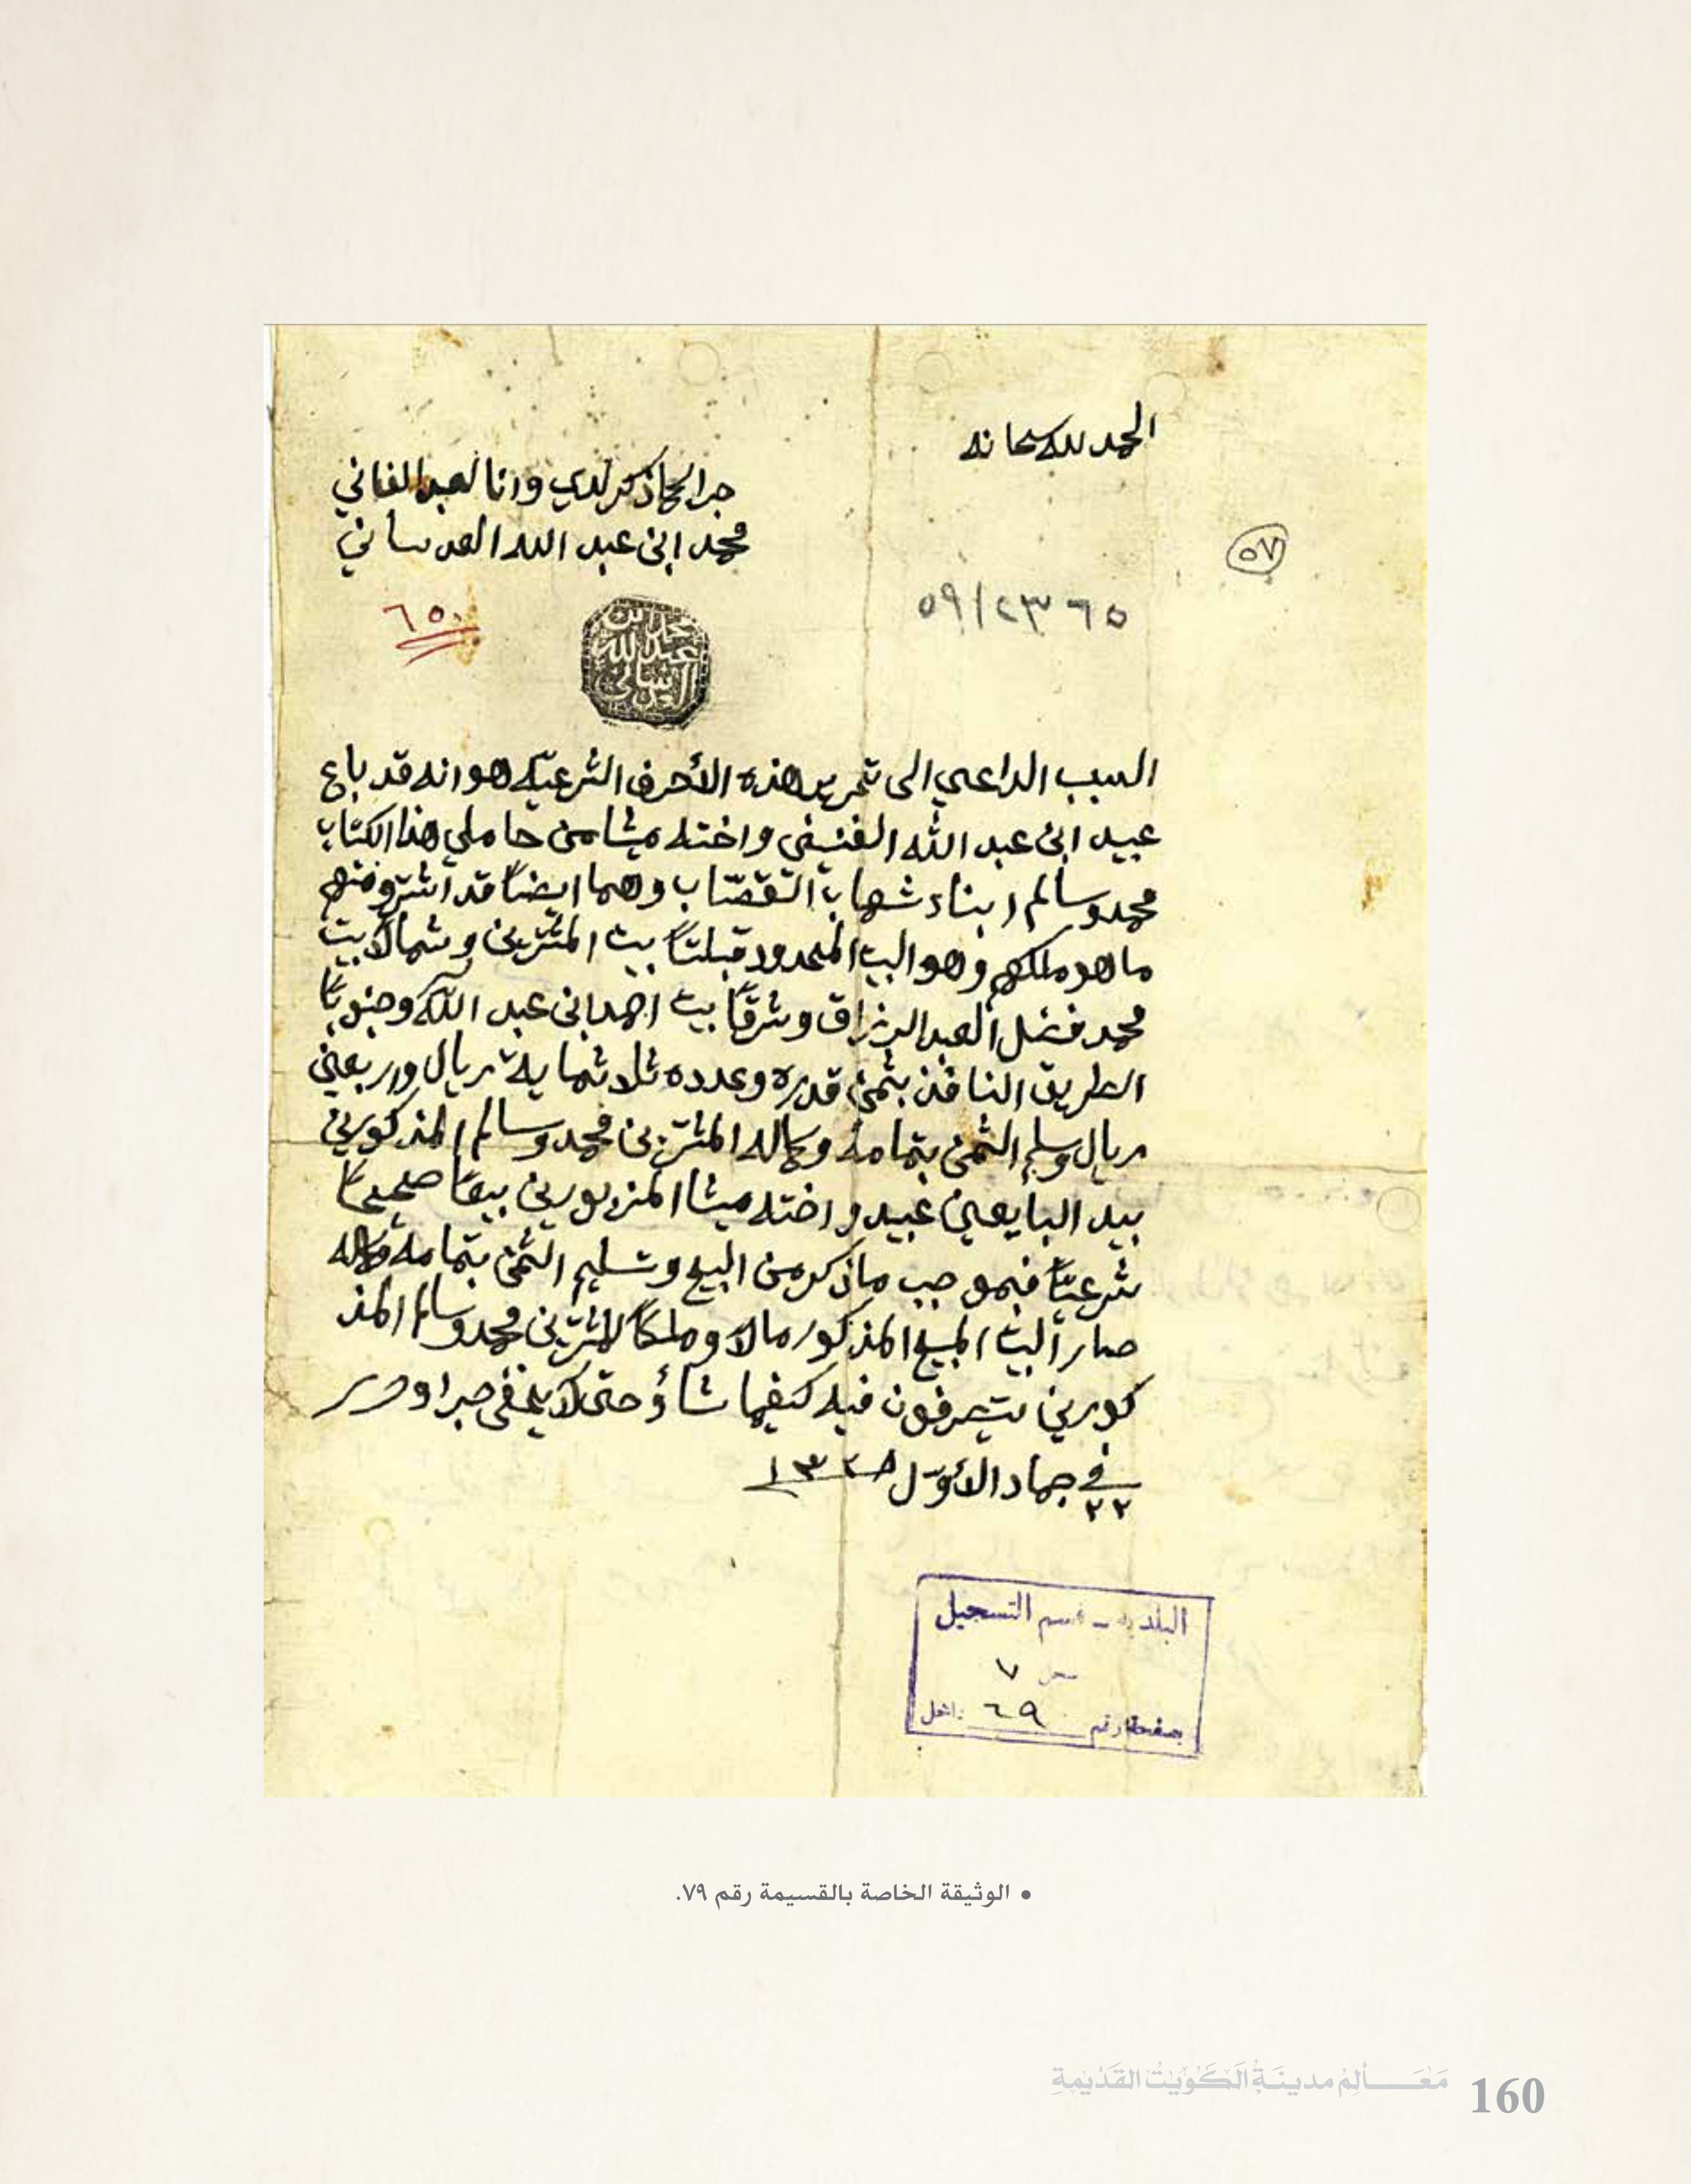 الحمد لله سبحانه
جرا لما ذكر لدي وانا لعبد الفاني
محمد ابن عبد الله العدساني
٥٧
٥٩/٢٣٦٥
٦٥٠
محمد بن
عبد الله
العدساني
السبب الداعي الى تحرير هذه الأحرف الشرعيّه هو انه قد باع
عبيد ابن عبد الله واخته ميثا من حاملي هذا الكتاب
محمد وسالم ابناء شهاب القصّاب وهما ايضاً قد اشترو منهم
ما هو ملكهم وهو البيت المحدود قبلتاً بيت المشترين وشمالاً بيت
محمد العبد الرزاق وشرقاً بيت احمد ابن عبد اللّه وجنوباً
الطريق النافذ بثمن قدره وعدده ثلاثماية ريال واربعين
ريال وسلم الثمن بتمامه وكماله المشترين محمد وسالم المذكورين
بيد البايعين عبيد واخته ميثا المزبورين بيعاً صحيحاً
شرعيّاً فبموجب ما ذكر من البيع وتسليم الثمن بتمامه وكماله
صار البيت المبيع المذكور مالاً وملكاً للمشترين محمد وسالم المذ
كورين يتصرفون فيه كيفما شاؤ حتى لا يخفى جرا وحرر
في ٢٢ جماد الأوّل ١٣٢٨
البلدية - قسم التسجيل
٧
بصفحة رقم ٦٩ داخل
• الوثيقة الخاصة بالقسيمة رقم ٧٩.
مَعَالِمُ مدينَةِ الكُوَيْتِ القَدِيْمَةِ 160